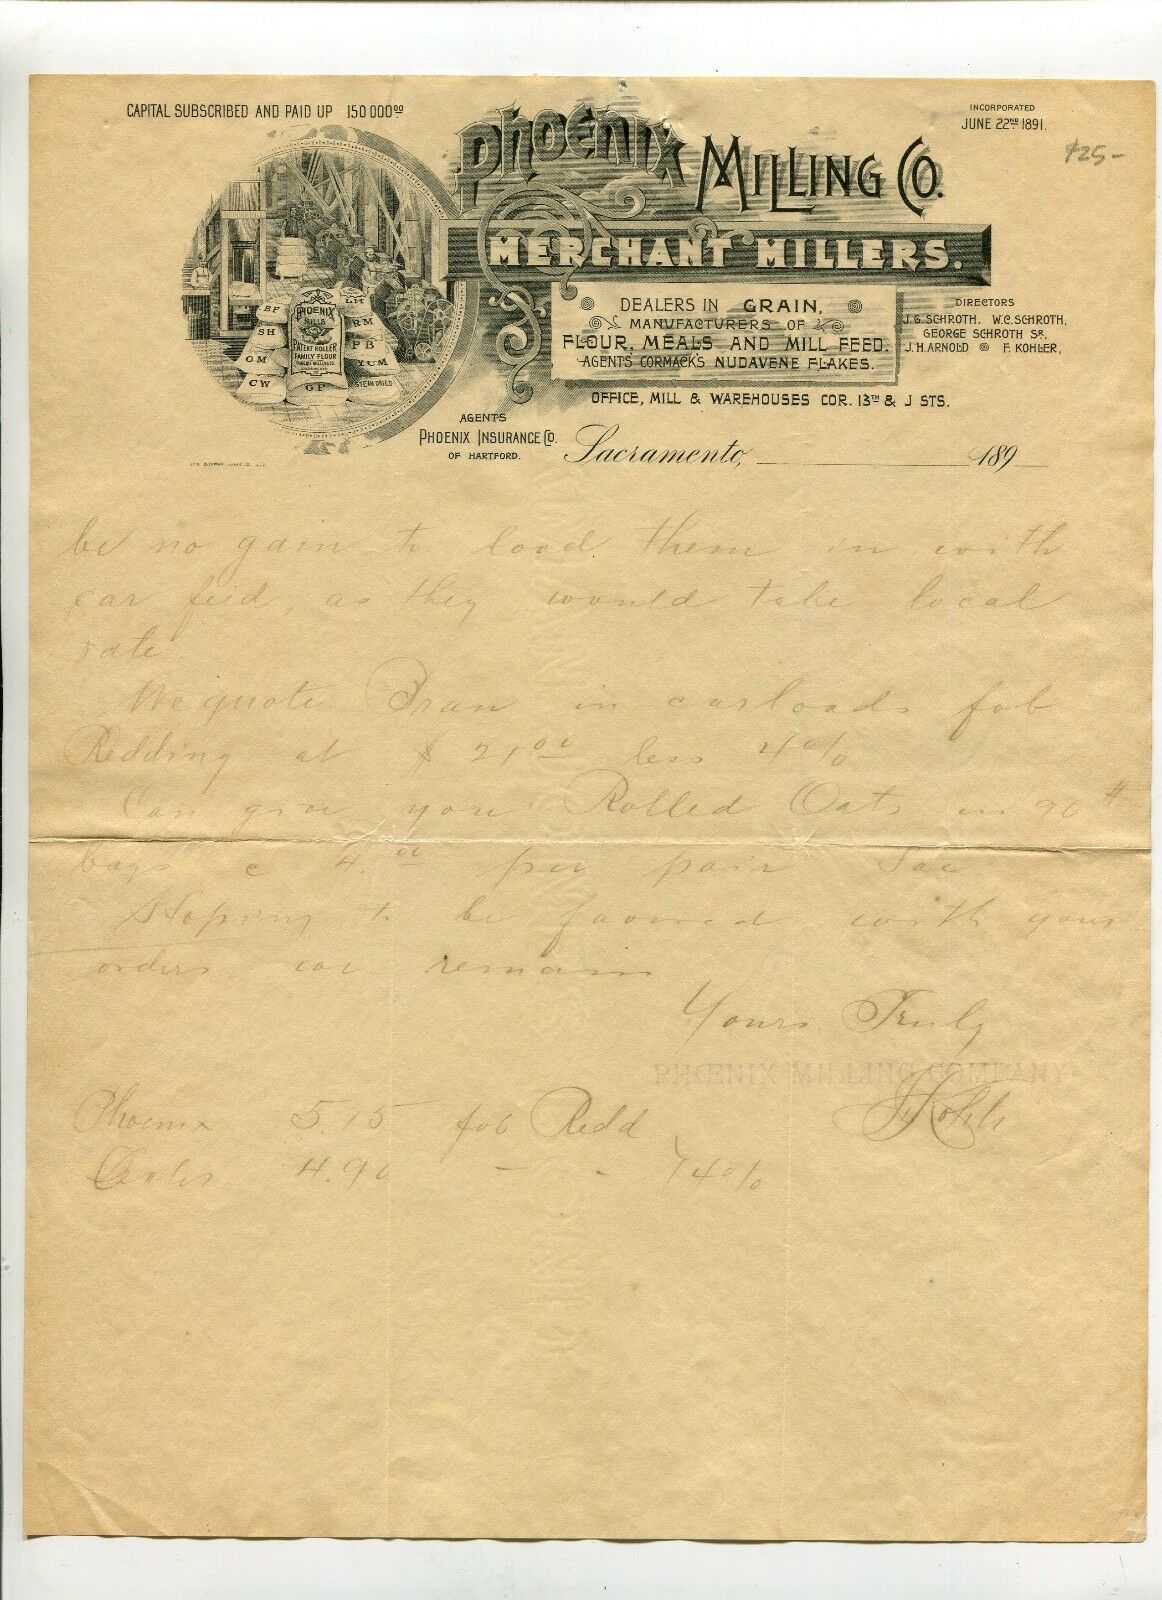 CAPITAL SUBSCRIBED AND PAID UP 150 000 00
INCORPORATED
JUNE 22ND 1891.
$25-
PHOENIX MILLING CO.
MERCHANT MILLERS.
DEALERS IN GRAIN,
MANUFACTURERS OF
FLOUR, MEALS AND MILL FEED.
AGENTS CORMACK'S NUDAVENE FLAKES.
DIRECTORS
J. G. SCHROTH, W. C. SCHROTH,
GEORGE SCHROTH SR,
J. H. ARNOLD F. KOHLER,
OFFICE, MILL & WAREHOUSES COR. 13TH & J STS.
BF
SH
OM
CW
PHOENIX
MILLS
PATENT ROLLER
FAMILY FLOUR
GF
LH
RM
PB
YCM
STEAM DRIED
AGENTS
PHOENIX INSURANCE CO.
OF HARTFORD.
Sacramento, 189
be no gain to load them in with
car feed, as they would take local
rate
We quote Bran in carloads fob
Redding at $ 21 00 less 4%
Can give you Rolled Oats in 90 #
bags @ 4.00 per pair Sac
Hoping to be favored with your
orders we remain
Yours Truly
PHOENIX MILLING COMPANY
Phoenix 5.15 fob Redd
4.90 - - 4%